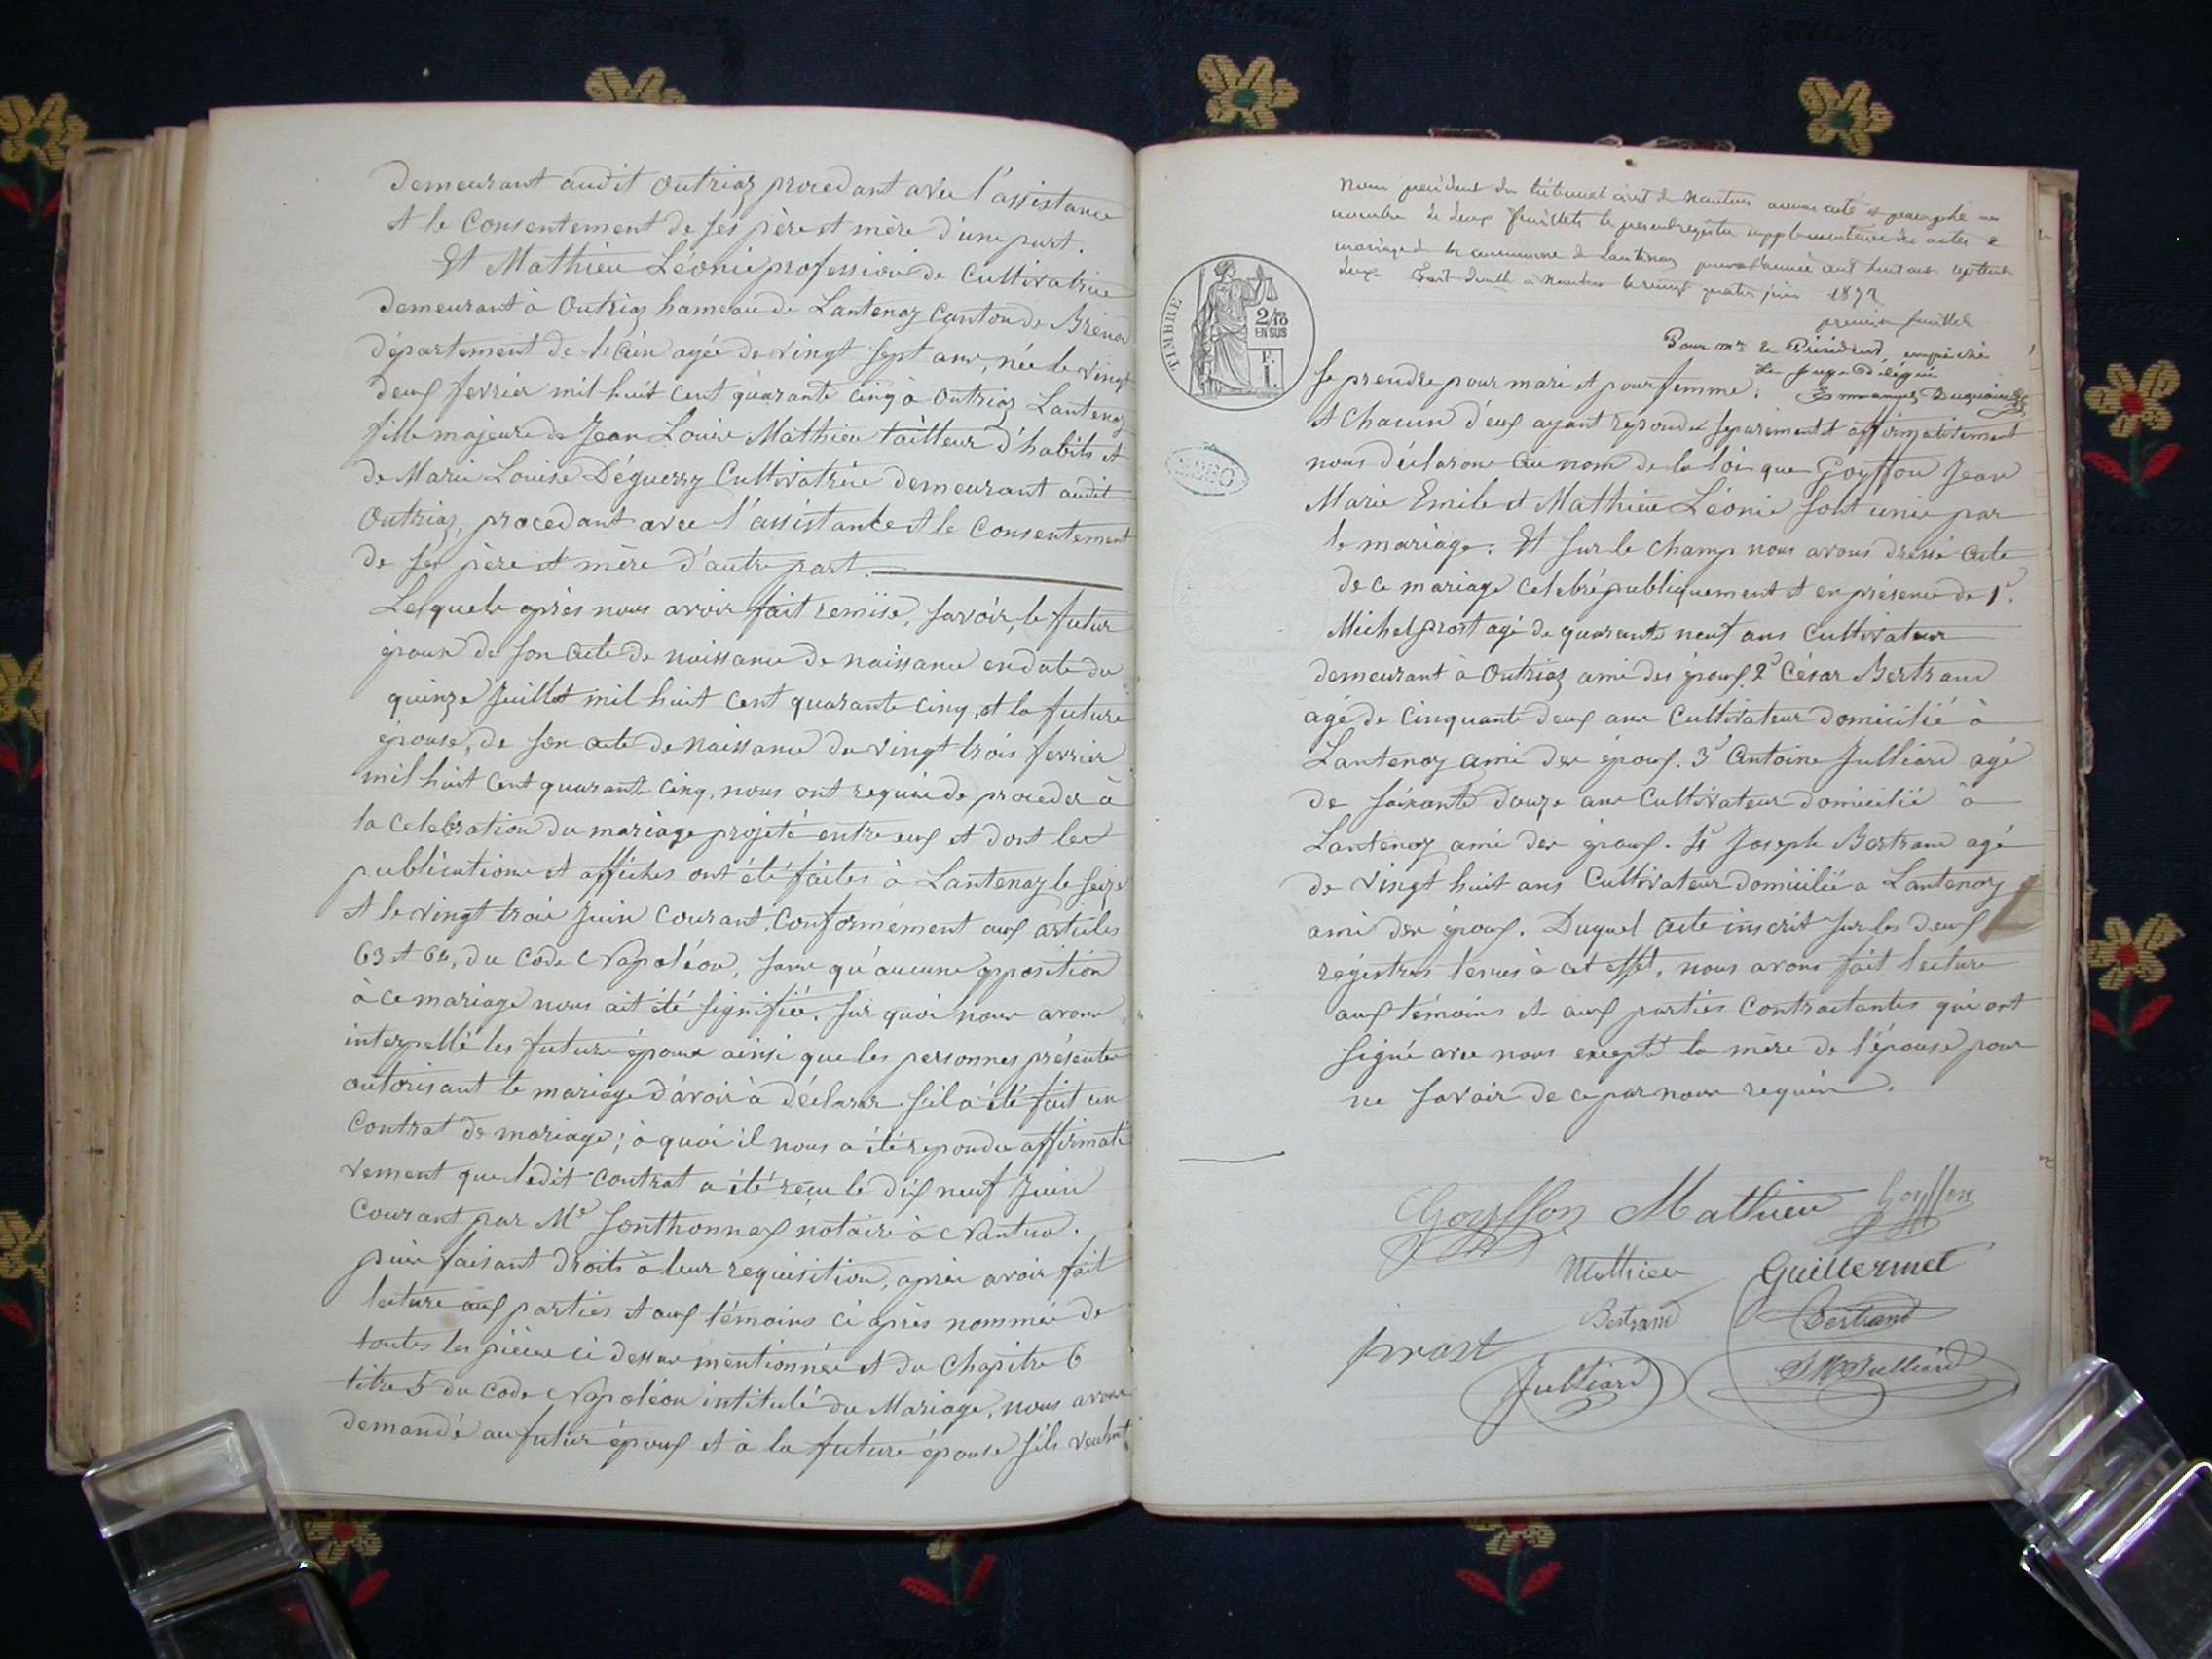 demeurant audit Outriaz procedant avec l'assistance
et le Consentement de ses père et mère d'une part.
Et Mathieu Léonie profession de Cultivatrice
demeurant à Outriaz hameau de Lantenay Canton de Brénod
département de l'Ain agée de vingt sept ans, née le vingt
deux fevrier mil huit cent quarante cinq à Outriaz Lantenay
fille majeure de Jean Louis Mathieu tailleur d'habits et
de Marie Louise Déguerry Cultivatrice demeurant audit
Outriaz, procedant avec l'assistance et le Consentement
de ses père et mère d'autre part.
Lesquels après nous avoir fait remise, savoir, le futur
époux de son acte de naissance de naissance en date du
quinze Juillet mil huit cent quarante cinq, et la future
épouse, de son acte de naissance du vingt trois fevrier
mil huit cent quarante cinq, nous ont requis de proceder à
la celebration du mariage projeté entre eux et dont les
publications et affiches ont été faites à Lantenay le seize
et le vingt trois Juin courant, Conformément aux articles
63 et 64, du Code Napoléon, sans qu'aucune opposition
à ce mariage nous ait été signifiée. Sur quoi nous avons
interpellé les futurs époux ainsi que les personnes présentes
autorisant le mariage d'avoir à déclarer s'il a été fait un
Contrat de mariage; à quoi il nous a été repondu affirmati
vement que ledit contrat a été reçu le dix neuf Juin
courant par Me Sonthonnax notaire à Nantua.
puis faisant droits à leur requisition, après avoir fait
lecture aux parties et aux témoins ci après nommés de
toutes les pièces ci dessus mentionnées et du Chapitre 6
titre 5 du Code Napoléon intitulé du Mariage, nous avons
demandé au futur époux et à la future épouse s'ils veulent
Nous président du tribunal civil de Nantua avons coté et paraphé au
nombre de deux feuillets le present registre supplementaire des actes de
mariage de la commune de Lantenay pour l'année mil huit cent septante
deux Fait à Nantua le vingt quatre juin 1872
premier feuillet
Pour Mr le Président empêché
Le Juge Délégué
TIMBRE
2/10
EN SUS
se prendre pour mari et pour femme.
et Chacun d'eux ayant repondu separement et affirmativement
nous déclarons au nom de la loi que Goyffon Jean
Marie Emile et Mathieu Léonie sont unis par
le mariage. Et sur le champ nous avons dressé acte
de ce mariage celebré publiquement et en présence de 1°
Michel Prost agé de quarante neuf ans Cultivateur
demeurant à Outriaz ami des époux, 2° César Bertrand
agé de Cinquante deux ans Cultivateur domicilié à
Lantenay ami des époux. 3° Antoine Julliard agé
de soixante douze ans Cultivateur domicilié à
Lantenay ami des époux. 4° Joseph Bertrand agé
de vingt huit ans Cultivateur domicilié a Lantenay
ami des époux. Duquel acte inscrit sur les deux
régistres tenus à cet effet, nous avons fait lecture
aux témoins et aux parties Contractantes qui ont
signé avec nous excepté la mère de l'épouse pour
ne savoir de ce par nous requise.
Goyffon Mathieu Goyffon
Mathieu Guillermet
Bertrand Bertrand
prost
Julliard Julliard